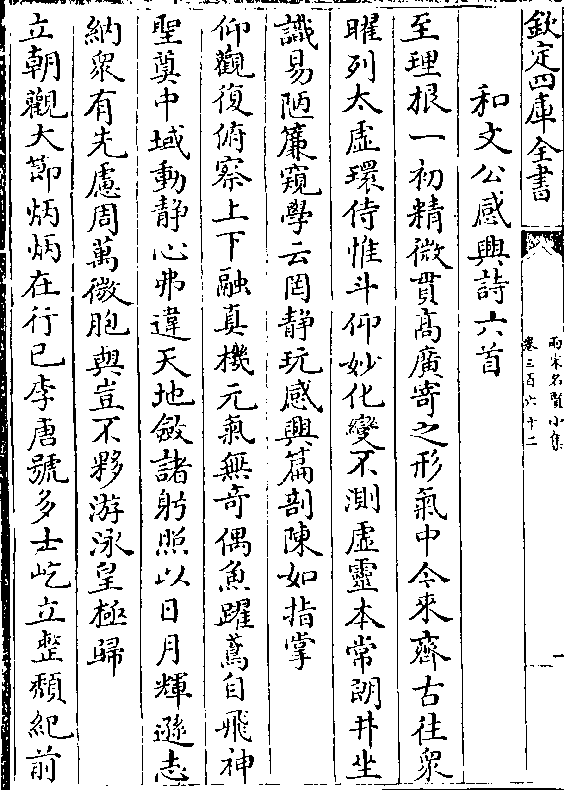 欽定四庫全書
兩宋名賢小集
卷三百六十二
一
和文公感興詩六首
至理根一初精微貫髙廣寄之形氣中今來齊古往衆
曜列太虛環侍惟斗仰妙化變不測虛靈本常朗井坐
識易陋簾窺學云罔静玩感興篇剖陳如指掌
仰觀復俯察上下融真機元氣無奇偶魚躍鳶自飛神
聖奠中域動静心弗違天地斂諸躬照以日月輝遜志
納衆有先慮周萬微胞與豈不夥游泳皇極歸
立朝觀大節炳炳在行已李唐號多士屹立整頽紀前